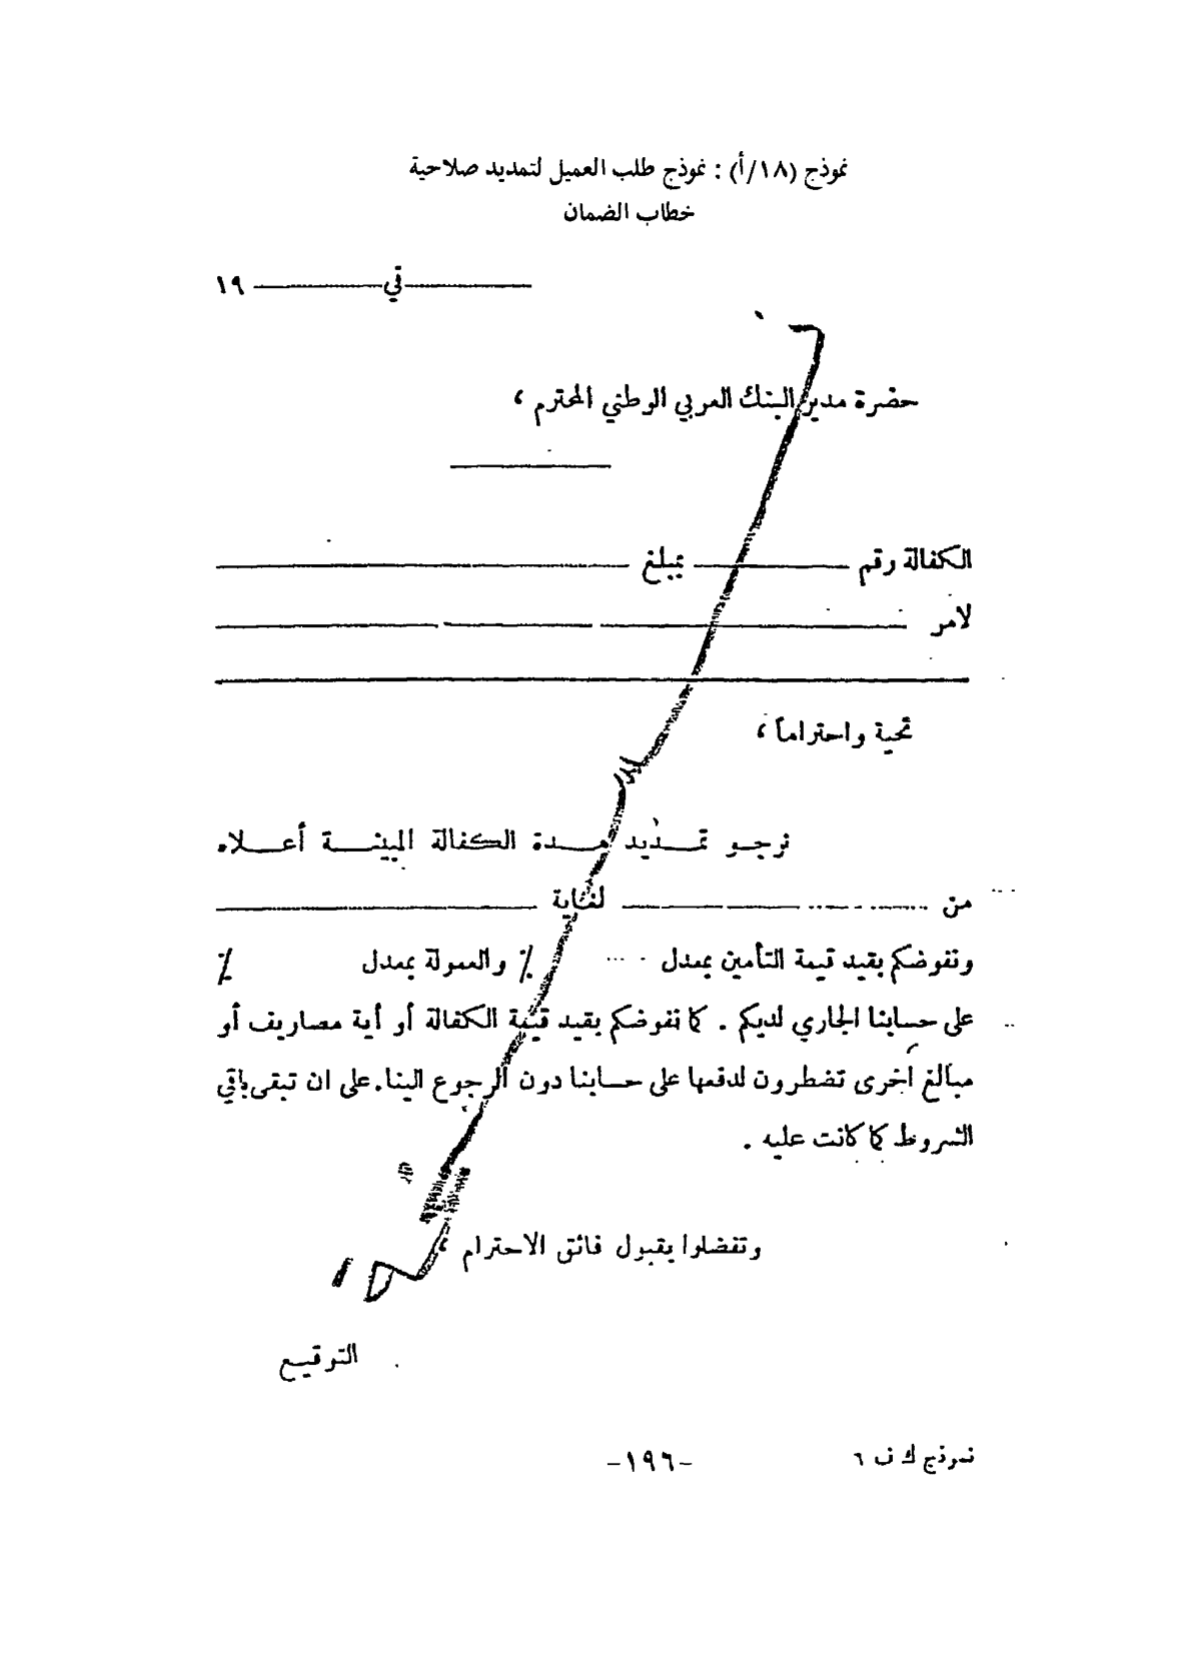 نموذج (١٨/أ) : نموذج طلب العميل لتمديد صلاحية
خطاب الضمان
في ١٩
حضرة مدير البنك العربي الوطني المحترم ،
الكفالة رقم بمبلغ
لامر
تحية واحتراماً ،
نرجو تمديد مدة الكفالة المبينة أعلاه
من لغاية
ونفوضكم بقيد قيمة التأمين بمعدل ٪ والعمولة بمعدل ٪
على حسابنا الجاري لديكم . كما نفوضكم بقيد قيمة الكفالة أو أية مصاريف أو
مبالغ أخرى تضطرون لدفعها على حسابنا دون الرجوع الينا. على ان تبقى باقي
الشروط كما كانت عليه .
وتفضلوا بقبول فائق الاحترام ،
التوقيع
نموذج ك ف ٦
-١٩٦-